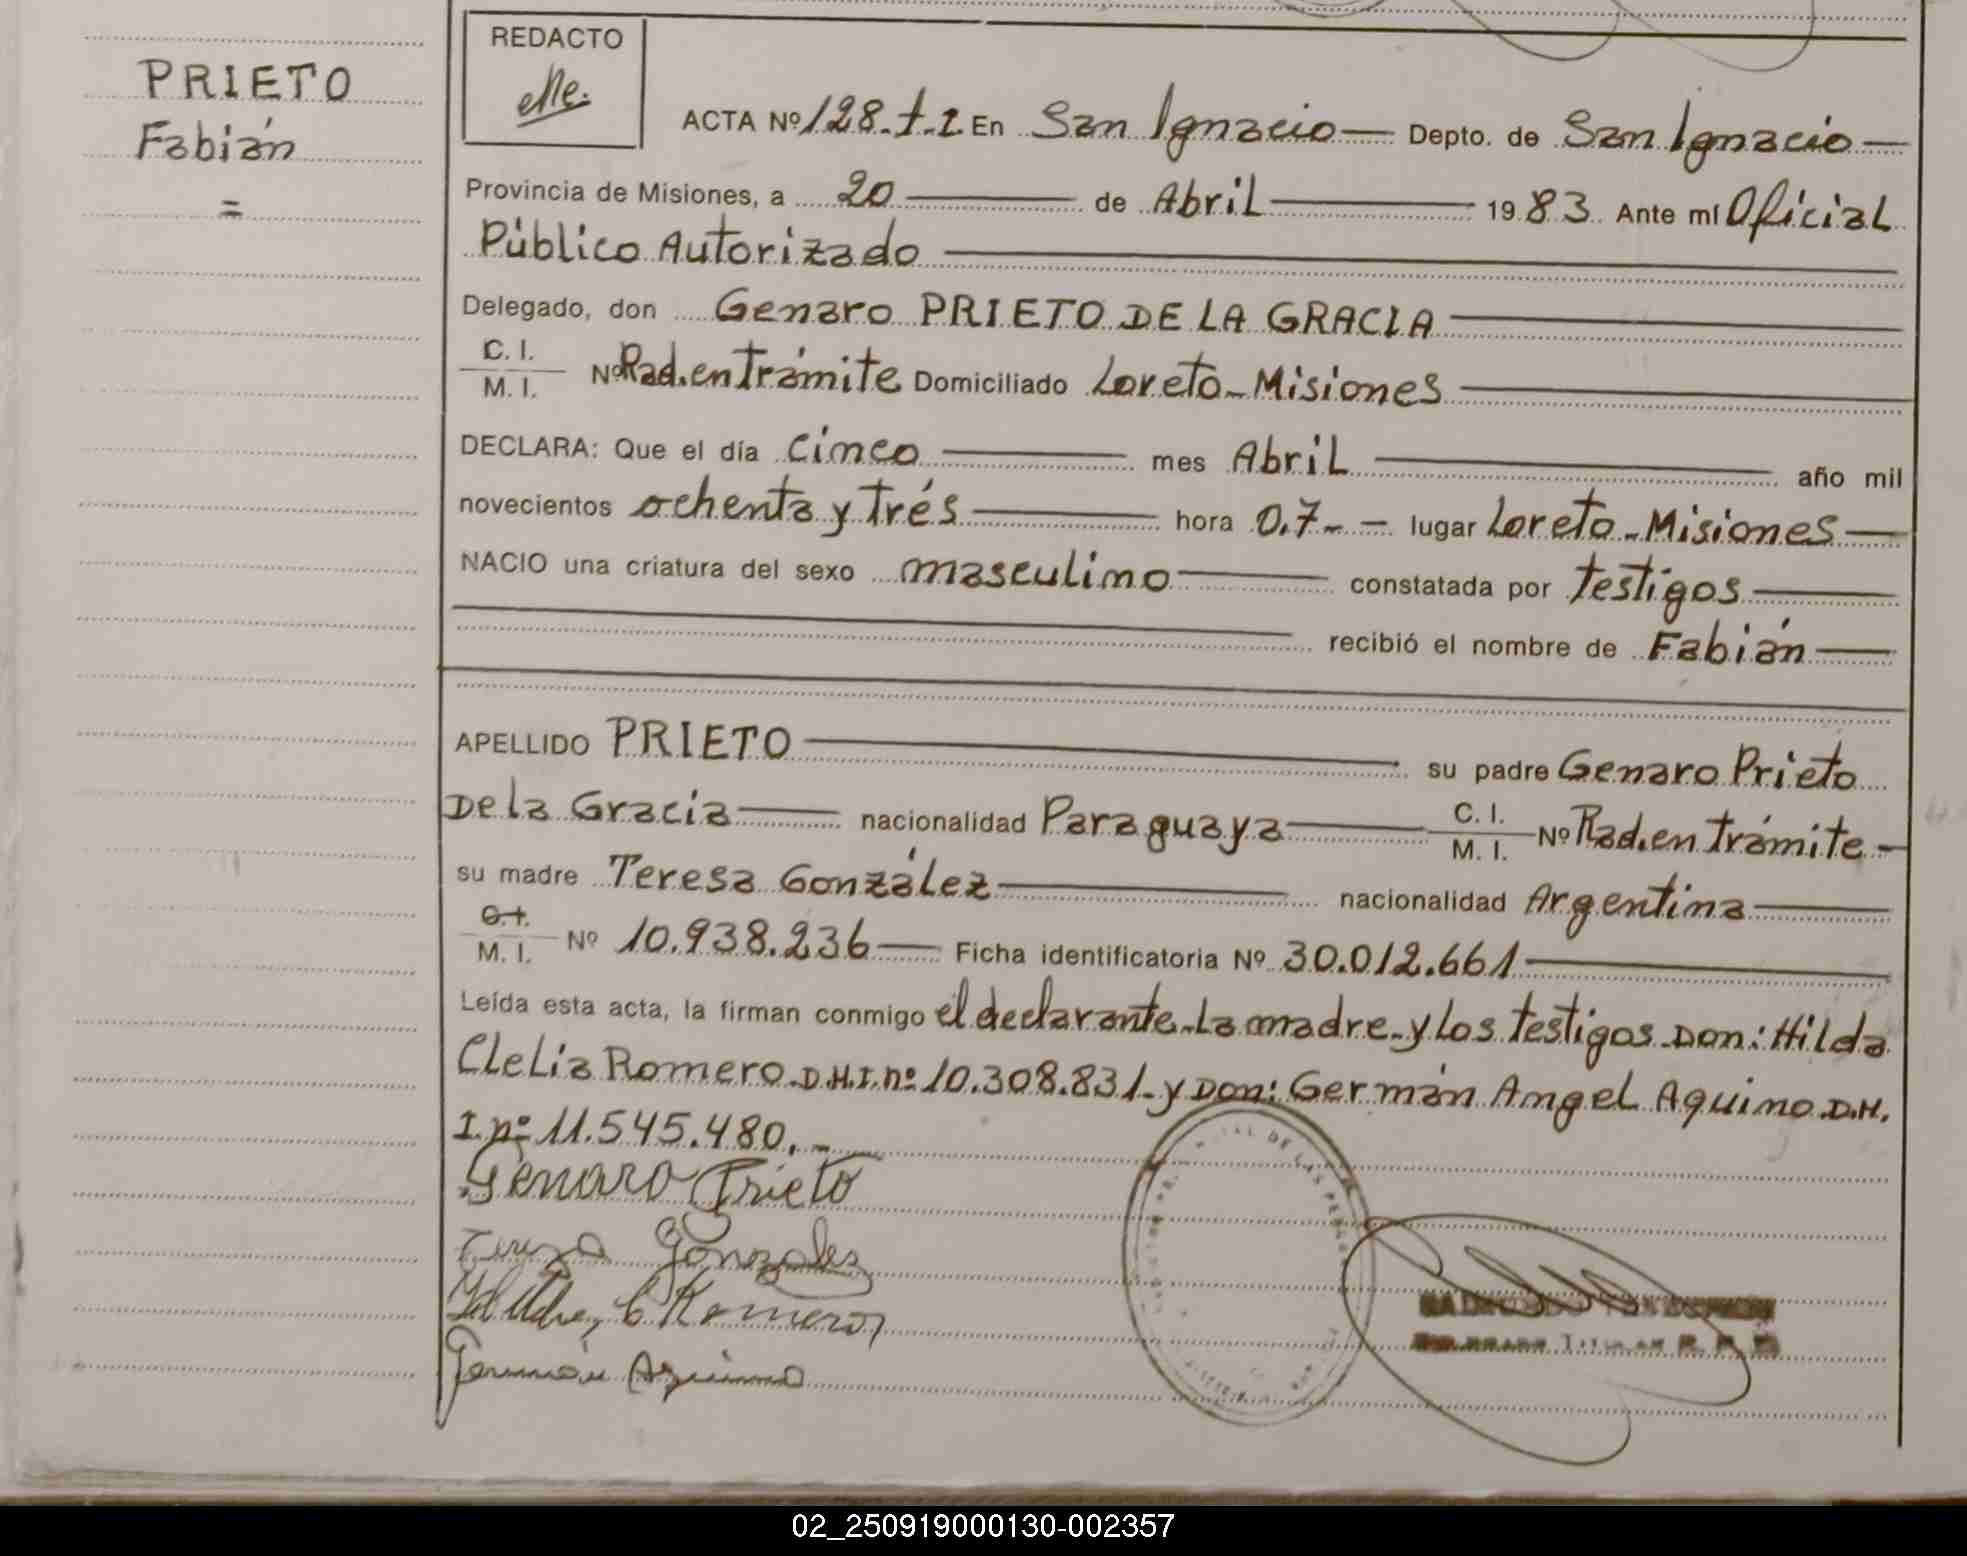 PRIETO
Fabián
=
REDACTO
ACTA Nº 128-t-1 En San Ignacio — Depto. de San Ignacio —
Provincia de Misiones, a 20 — de Abril — 1983 Ante mí Oficial
Público Autorizado —
Delegado, don Genaro PRIETO DE LA GRACIA —
C. I.
M. I. Nº Rad. en Trámite Domiciliado Loreto - Misiones —
DECLARA: Que el día cinco — mes Abril — año mil
novecientos ochenta y trés — hora 0.7- — lugar Loreto - Misiones —
NACIO una criatura del sexo masculino — constatada por testigos —
— recibió el nombre de Fabián —
APELLIDO PRIETO — su padre Genaro Prieto
De la Gracia — nacionalidad Paraguaya — C. I. M. I. Nº Rad. en Trámite —
su madre Teresa González — nacionalidad Argentina —
C. I.
M. I. Nº 10.938.236 — Ficha identificatoria Nº 30.012.661 —
Leída esta acta, la firman conmigo el declarante - La madre - y los testigos Don: Hilda
Clelia Romero D.N.I. nº 10.308.831 - y Don: Germán Angel Aquino D.N.
I. nº 11.545.480. -
Genaro Prieto
Tereza Gonzalez
C Romero
Germán Aquino
02_250919000130-002357